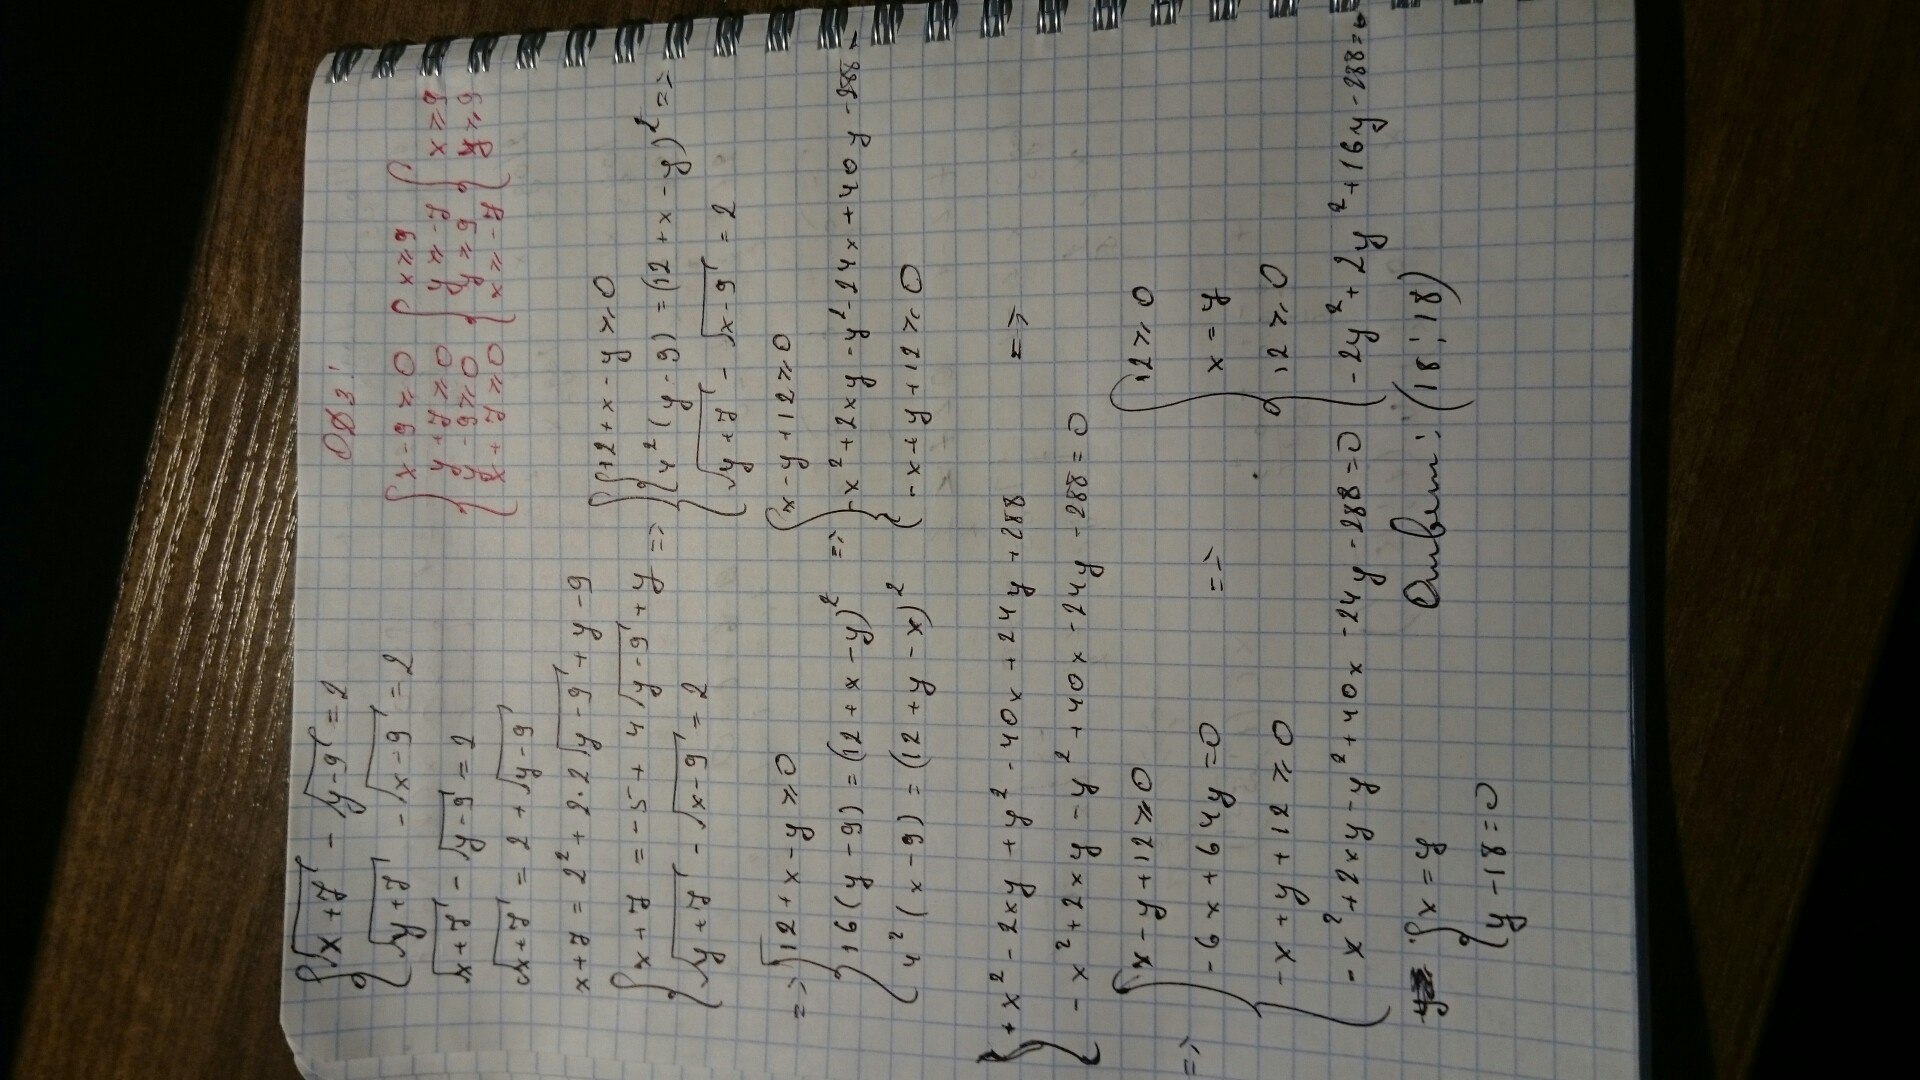 { √(x+7) - √(y-9) = 2
{ √(y+7) - √(x-9) = 2
ОДЗ:
{ x-9⩾0 { x⩾9
{ y+7⩾0 { y⩾-7 { x⩾9
{ y-9⩾0 { y⩾9 { y⩾9
{ x+7⩾0 { x⩾-7
√(x+7) - √(y-9) = 2
√(x+7) = 2 + √(y-9)
x+7 = 2² + 2·2√(y-9) + y-9
{ x+7 = -5 + 4√(y-9) + y =>
{ √(y+7) - √(x-9) = 2
{ 12+x-y⩾0
{ 4²(y-9) = (12+x-y)² =>
{ √(y+7) - √(x-9) = 2
=> { 12+x-y⩾0
{ 16(y-9) = (12+x-y)² =>
{ 4²(x-9) = (12+y-x)²
{ x-y+12⩾0
{ -x²+2xy-y²-24x+40y-288
{ -x+y+12⩾0
{ +x²-2xy+y²-40x+24y+288 =>
{ -x²+2xy-y²+40x-24y-288=0
=> { x-y+12⩾0
{ -6x+64y=0 =>
{ -x+y+12⩾0
{ -x²+2xy-y²+40x-24y-288=0
{ 12⩾0
{ x=y
{ 12⩾0
{ -2y²+2y²+16y-288=0
{ x=y
{ y-18=0
Ответ: (18; 18)